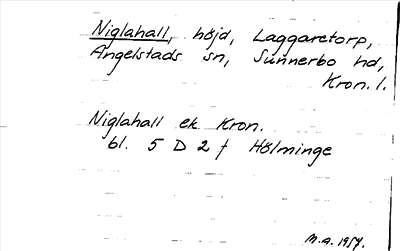 Niglahall, höjd, Laggaretorp,
Angelstads sn, Sunnerbo hd,
Kron. l.
Niglahall ek. Kron.
bl. 5 D 2 f Hölminge
M.A. 1957.